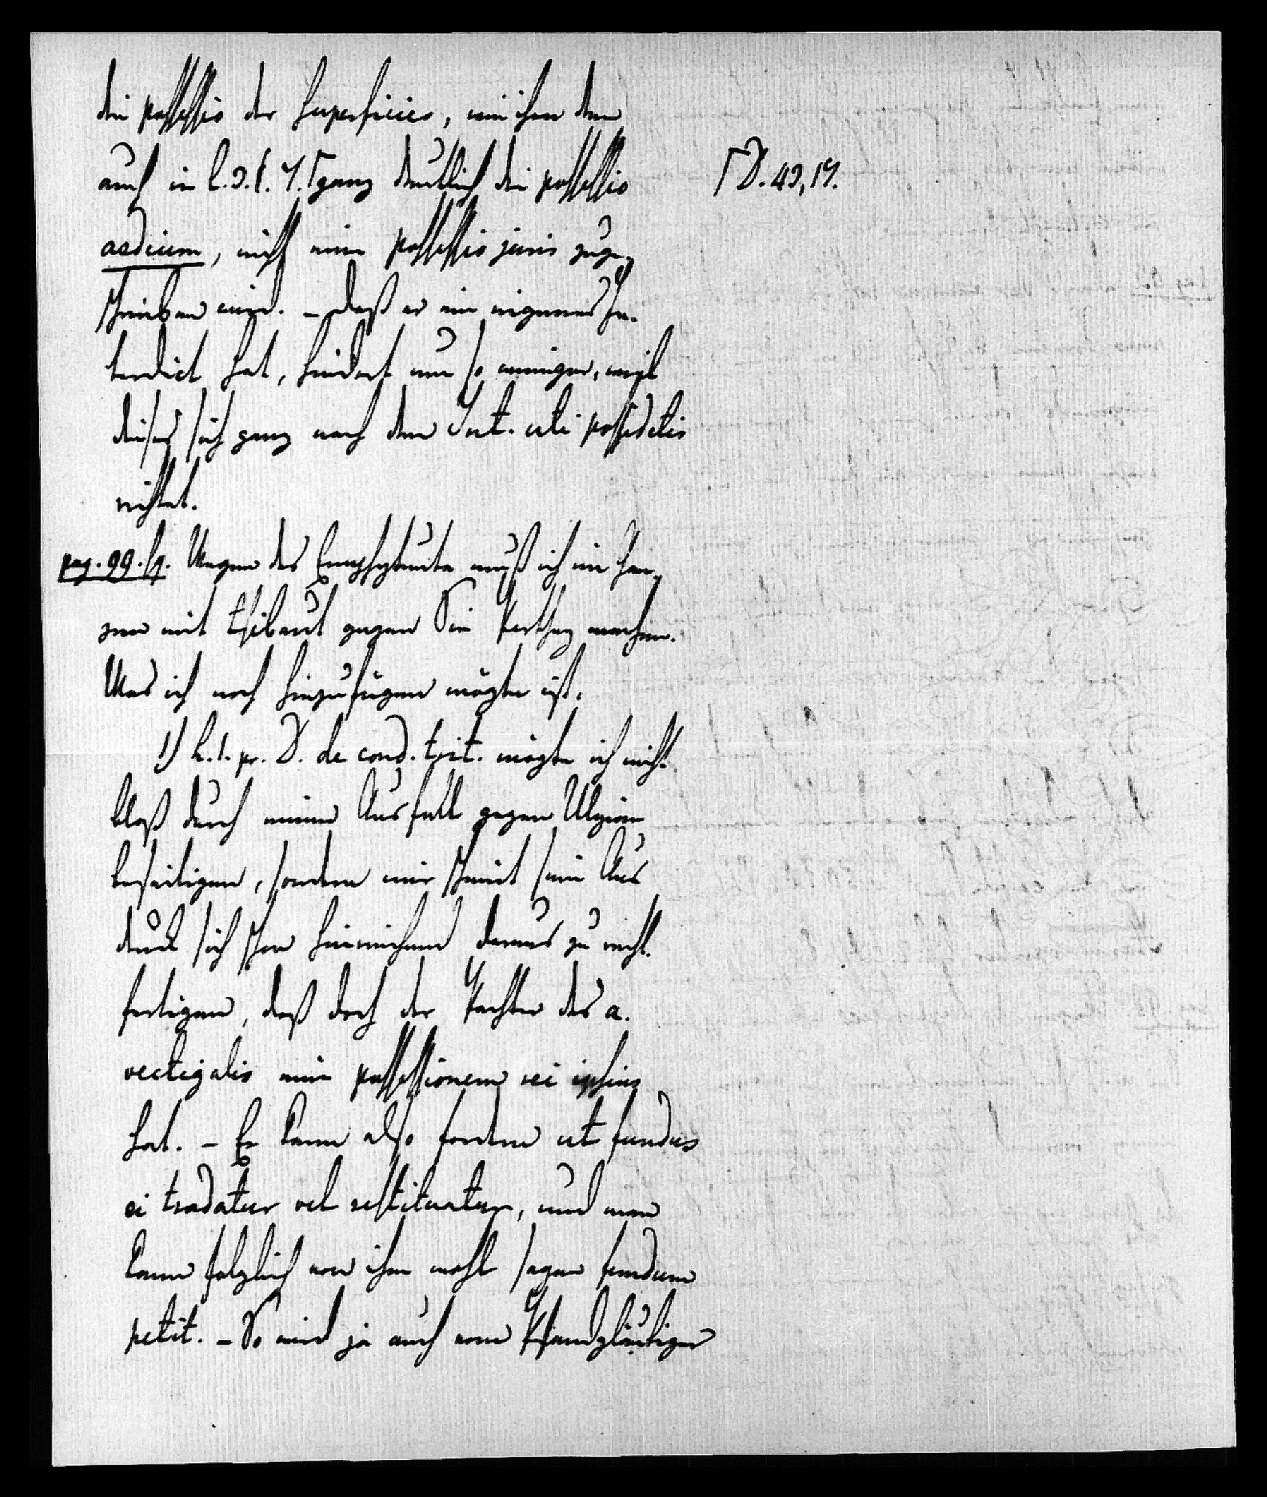 die possessio der Superficies, wie ihm denn
auch in l. 3. §. 7. ⌈ganz deutlich die possessio
⌈D. 43,17.
aedium, nicht eine possessio juris zuge-
schrieben wird. – Daß er ein eigenes In-
terdict hat, hindert um so weniger, weil
dieses sich ganz nach dem Int. uti possidetis
richtet.
pag. 99. sq. Wegen des Emphyteuta muß ich im
mit Thibaut gegen Sie Parthey machen.
Was ich noch hinzufügen mögte ist.
1) L. 1. pr. D. de cond. trit. mögte ich nicht
bloß durch einen Ausfall gegen Ulpian
beseitigen, sondern mir scheint sein Aus
druck sich schon hinreichend daraus zu recht-
fertigen, daß doch der Pachter des a.
vectigalis eine possessionem rei ipsius
hat. – Er kann also fordern ut fundus
ei tradatur vel restituatur, und man
kann folglich von ihm wohl sagen fundum
petit. – So wird ja auch vom Pfandgläubiger